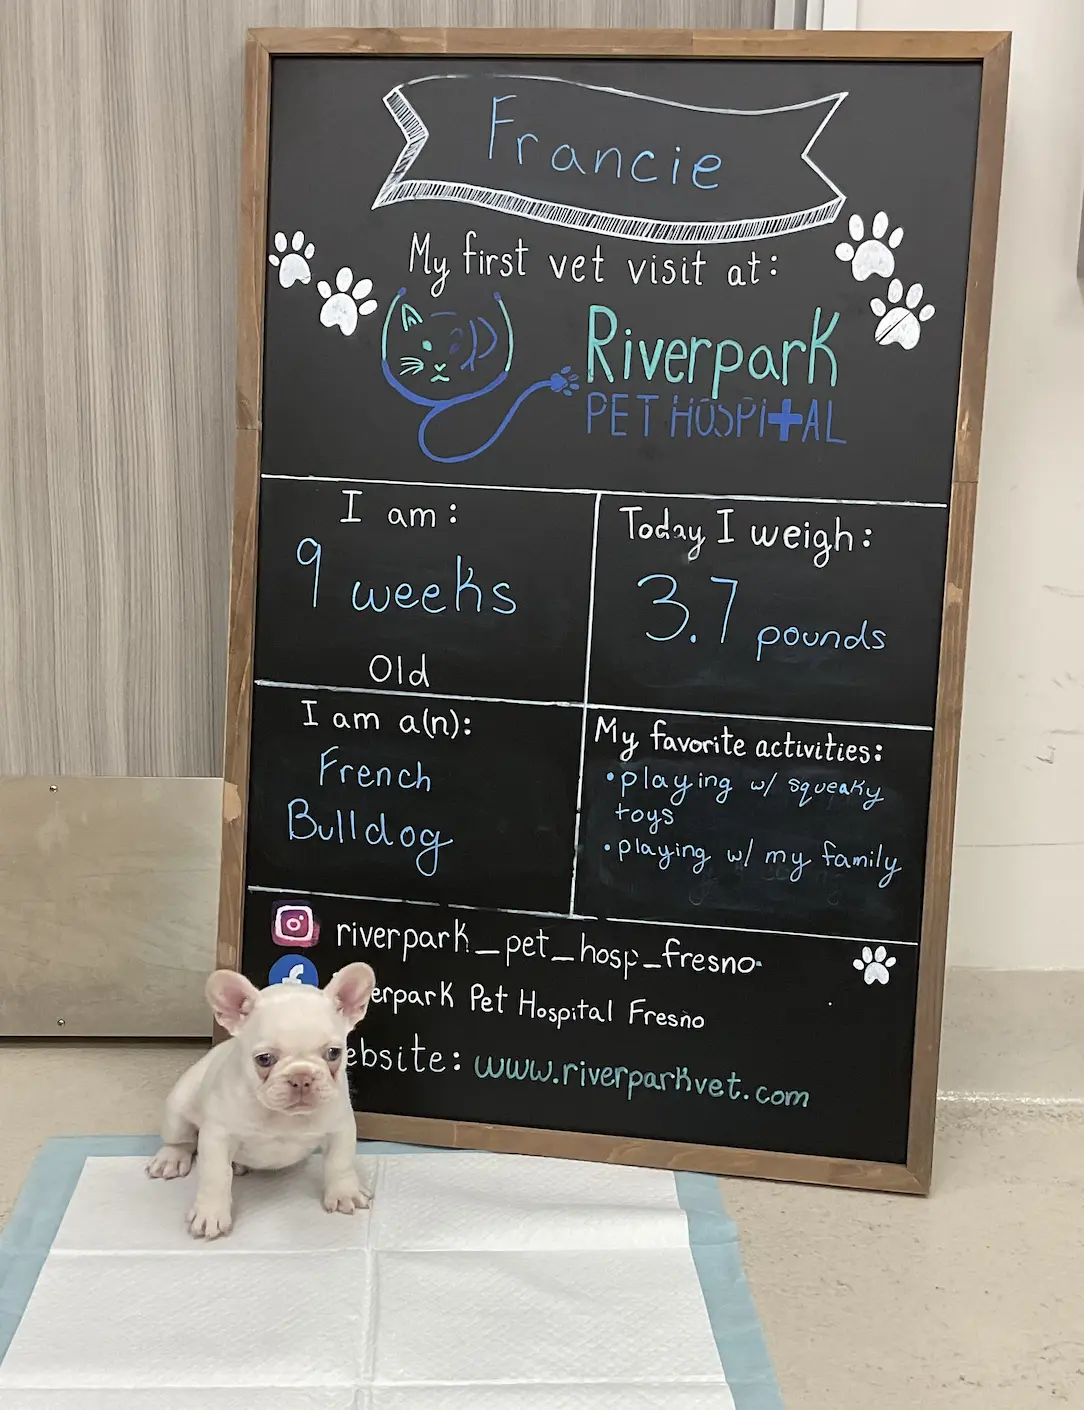 Francie
My first vet visit at:
Riverpark
PET HOSPITAL
I am:
9 weeks
Old
Today I weigh:
3.7 pounds
I am a(n):
French
Bulldog
My favorite activities:
•playing w/ squeaky
toys
•playing w/ my family
riverpark_pet_hosp_fresno
erpark Pet Hospital Fresno
ebsite: www.riverparkvet.com